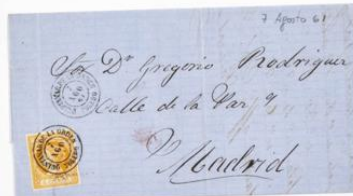 7 Agosto 61
Sor Dn Gregorio Rodriguez
Calle de la Paz 7
Madrid